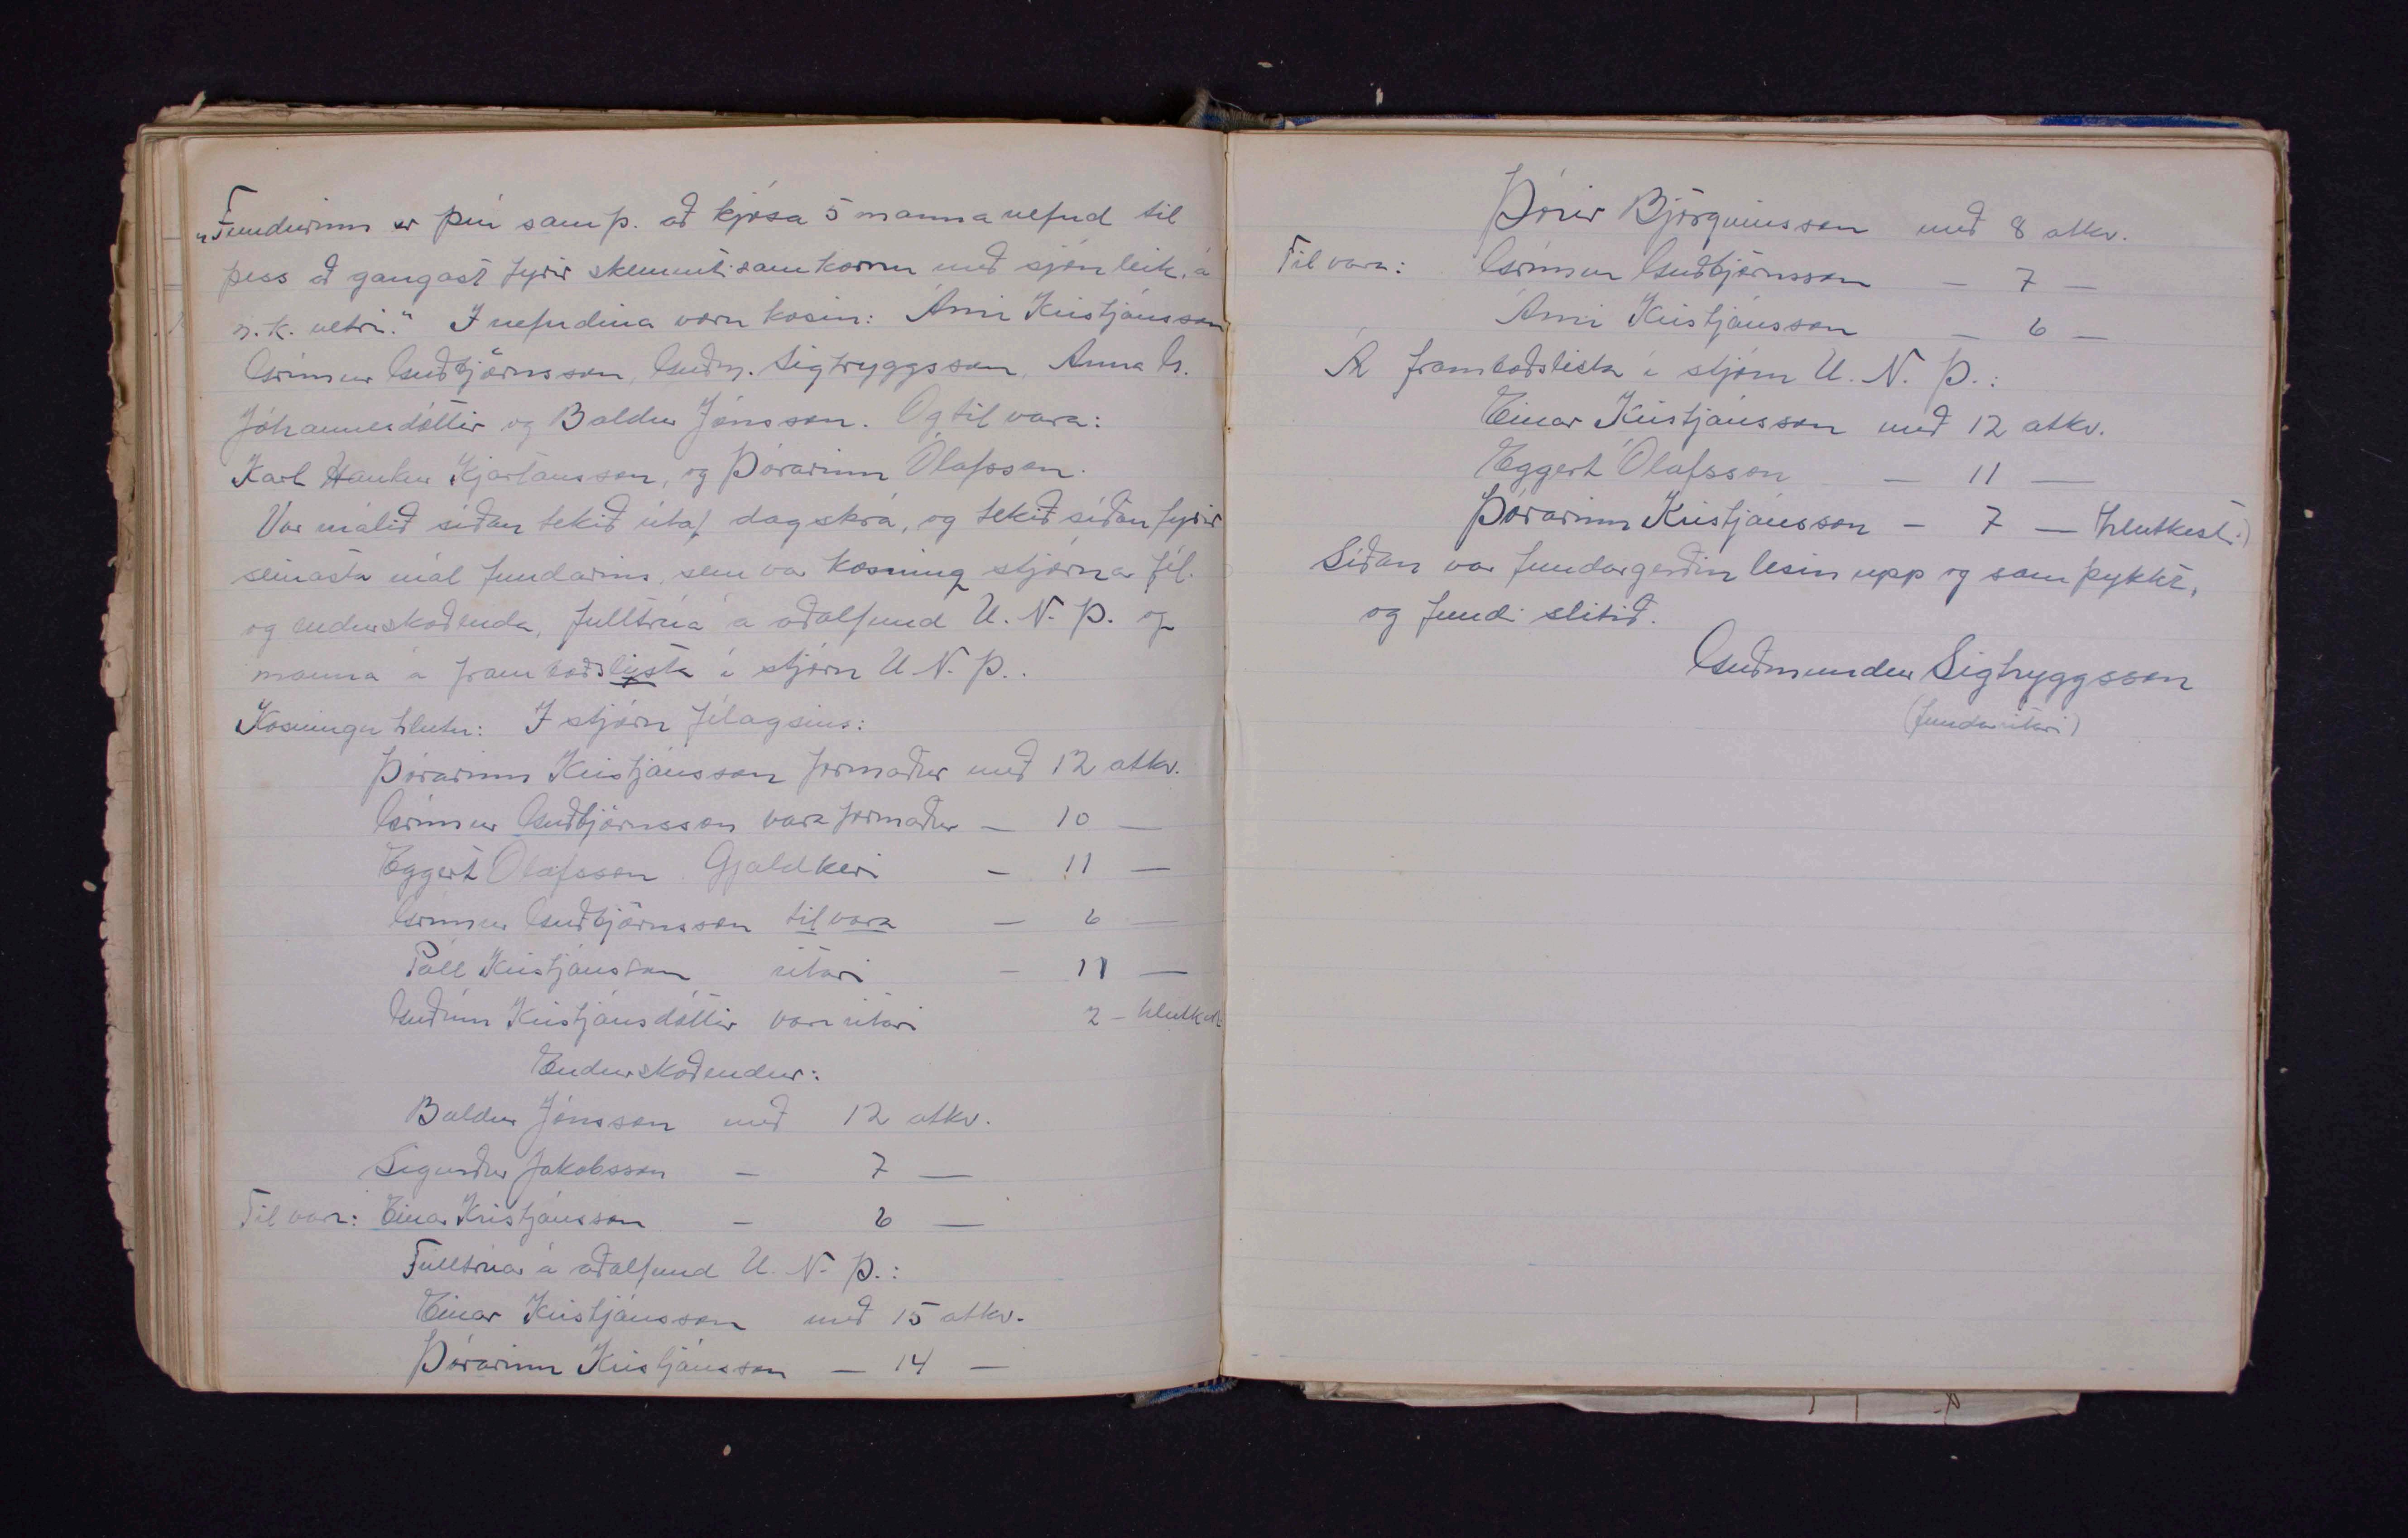 „Fundurinn er því samþ. að kjósa 5 manna nefnd til
þess að gangast fyrir skemmtisamkomu með sjónleik, á
n.k. vetri." I nefndina voru kosin: Árni Kristjánsson
Grímur Guðbjörnsson, Guðm. Sigtryggsson, Anna G.
Jóhannesdóttir og Baldur Jónsson. Og til vara:
Karl Haukur Kjartansson, og Þórarinn Ólafsson.
Var málið síðan tekið útaf dagskrá, og tekið síðan fyrir
seinasta mál fundarins, sem var kosning stjórnar fél.
og endurskoðenda, fulltrúa á aðalfund U. N. Þ. og
manna á framboðslista í stjórn U. N. Þ..
Kosningu hlutu: I stjórn félagsins:
Þórarinn Kristjánsson formaður með 12 atkv.
Grímur Guðbjörnsson vara formaður — 10 —
Eggert Ólafsson Gjaldkeri — 11 —
Grímur Guðbjörnsson til vara — 6 —
Páll Kristjánsson ritari — 11 —
Guðrún Kristjánsdóttir vara ritari 2 – hlutk.
Endurskoðendur:
Baldur Jónsson með 12 atkv.
Sigurður Jakobsson — 7 —
Til vara: Einar Kristjánsson — 6 —
Fulltrúar á aðalfund U. N. Þ.:
Einar Kristjánsson með 15 atkv.
Þórarinn Kristjánsson — 14 —
Þórir Björgvinsson með 8 atkv.
Til vara: Grímur Guðbjörnsson — 7 —
Árni Kristjánsson — 6 —
Á framboðslista í stjórn U. N. Þ.:
Einar Kristjánsson með 12 atkv.
Eggert Ólafsson — 11 —
Þórarinn Kristjánsson — 7 — (hlutkesti)
Síðan var fundargerðin lesin upp og samþykkt,
og fundi slitið.
Guðmundur Sigtryggsson
(fundarritari)